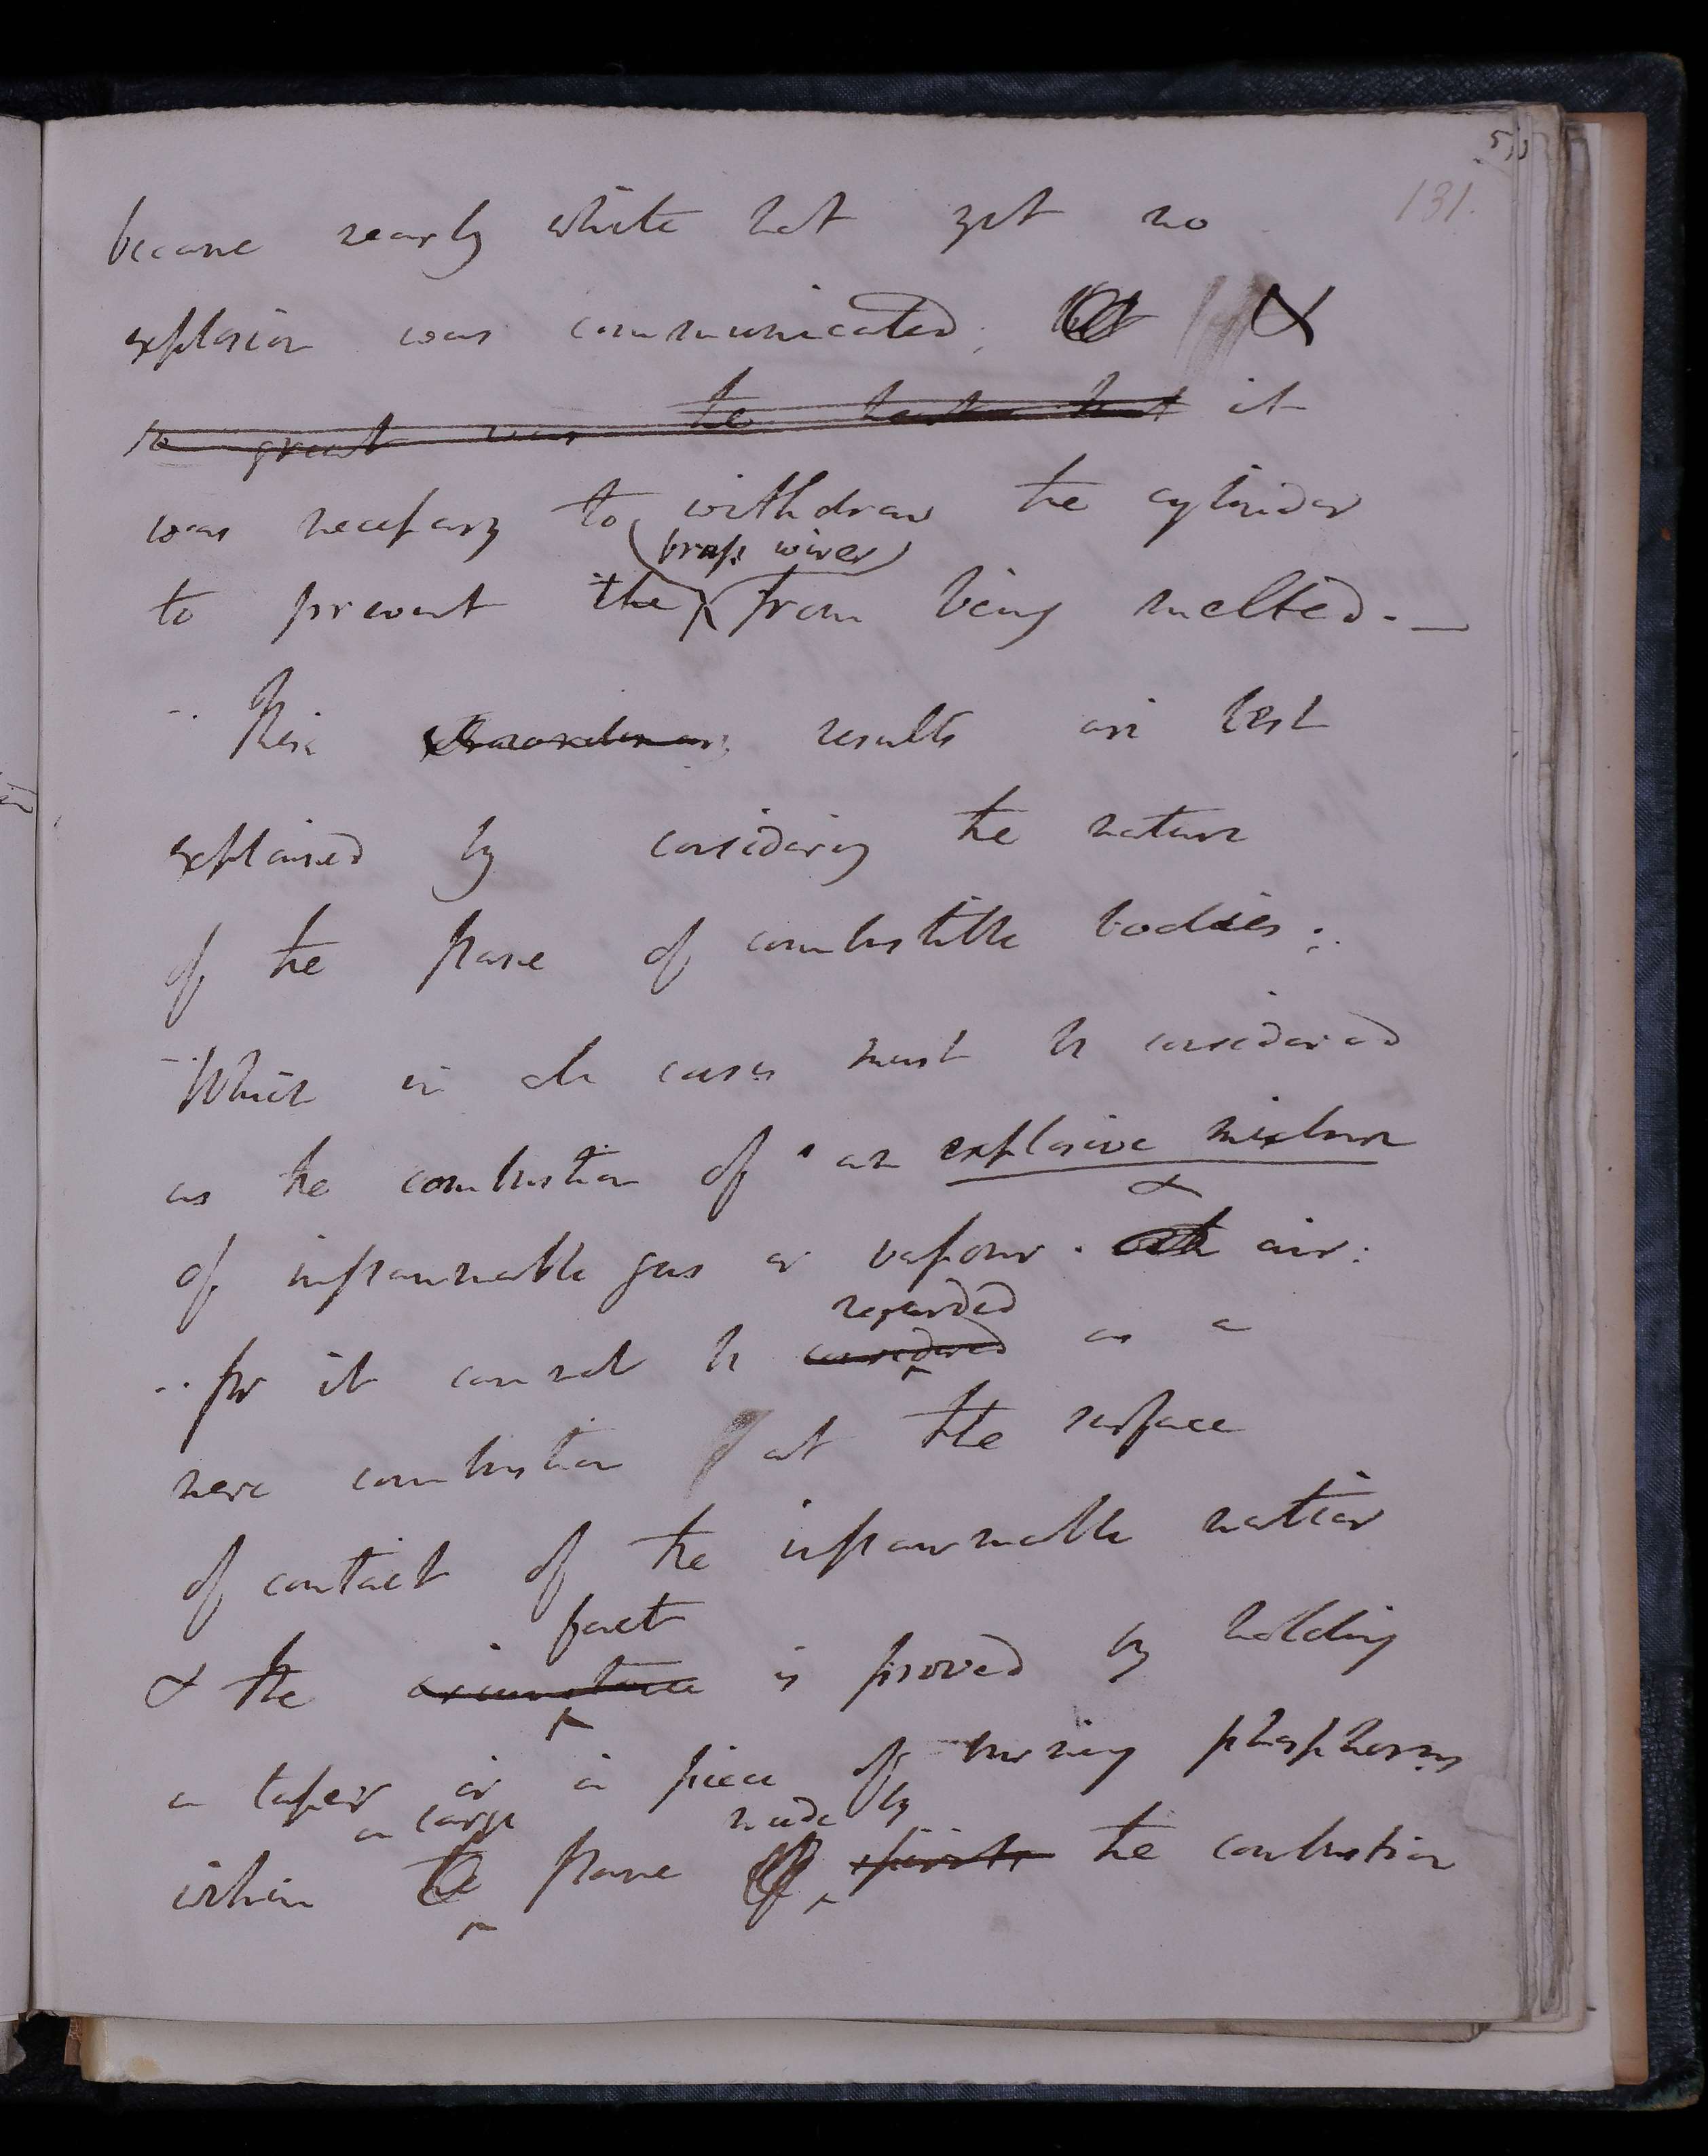 131.
became nearly white hot yet no
explosion was communicated; &
so great was the heat that it
was necessary to withdraw the cylinder
brass wires
to prevent the from being melted. —
These extraordinary results are best
explained by considering the nature
of the flame of combustible bodies;
Which in all cases must be considered
as the combustion of an explosive mixture
&
of inflammable gas or vapour. with air:
regarded
for it cannot be considered as a
mere combustion at the surface
of contact of the inflammable matter
fact
& the circumstance is proved by holding
a taper or a piece of burning phosphorus
a large made by
within the flame of spirits the combustion